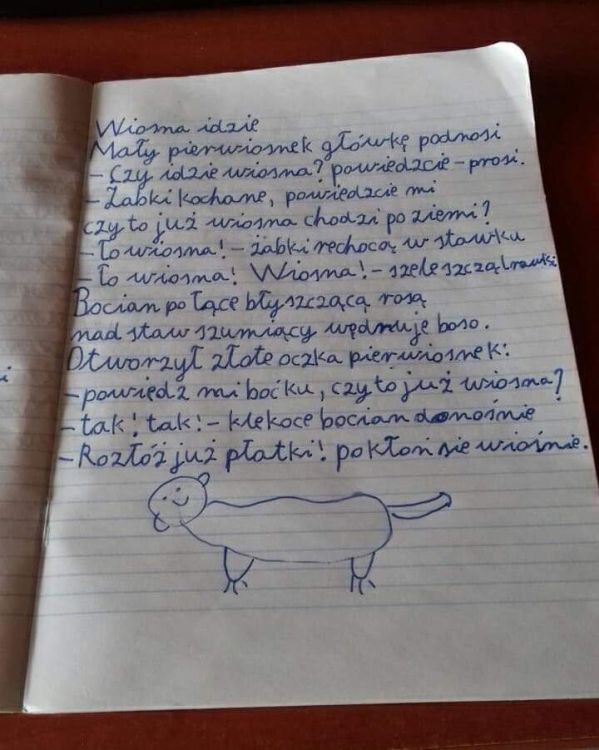 Wiosna idzie
Mały pierwiosnek główkę podnosi
- Czy idzie wiosna? powiedzcie - prosi.
- Żabki kochane, powiedzcie mi
czy to już wiosna chodzi po ziemi?
- To wiosna! - żabki rechocą w stawku
- To wiosna! Wiosna! - szeleszczą trawki
Bocian po łące błyszczącą rosą
nad staw szumiący wędruje boso.
Otworzył złote oczka pierwiosnek:
- powiedz mi boćku, czy to już wiosna?
- tak! tak! - klekoce bocian donośnie
- Rozłóż już płatki! pokłoń sie wiośnie.